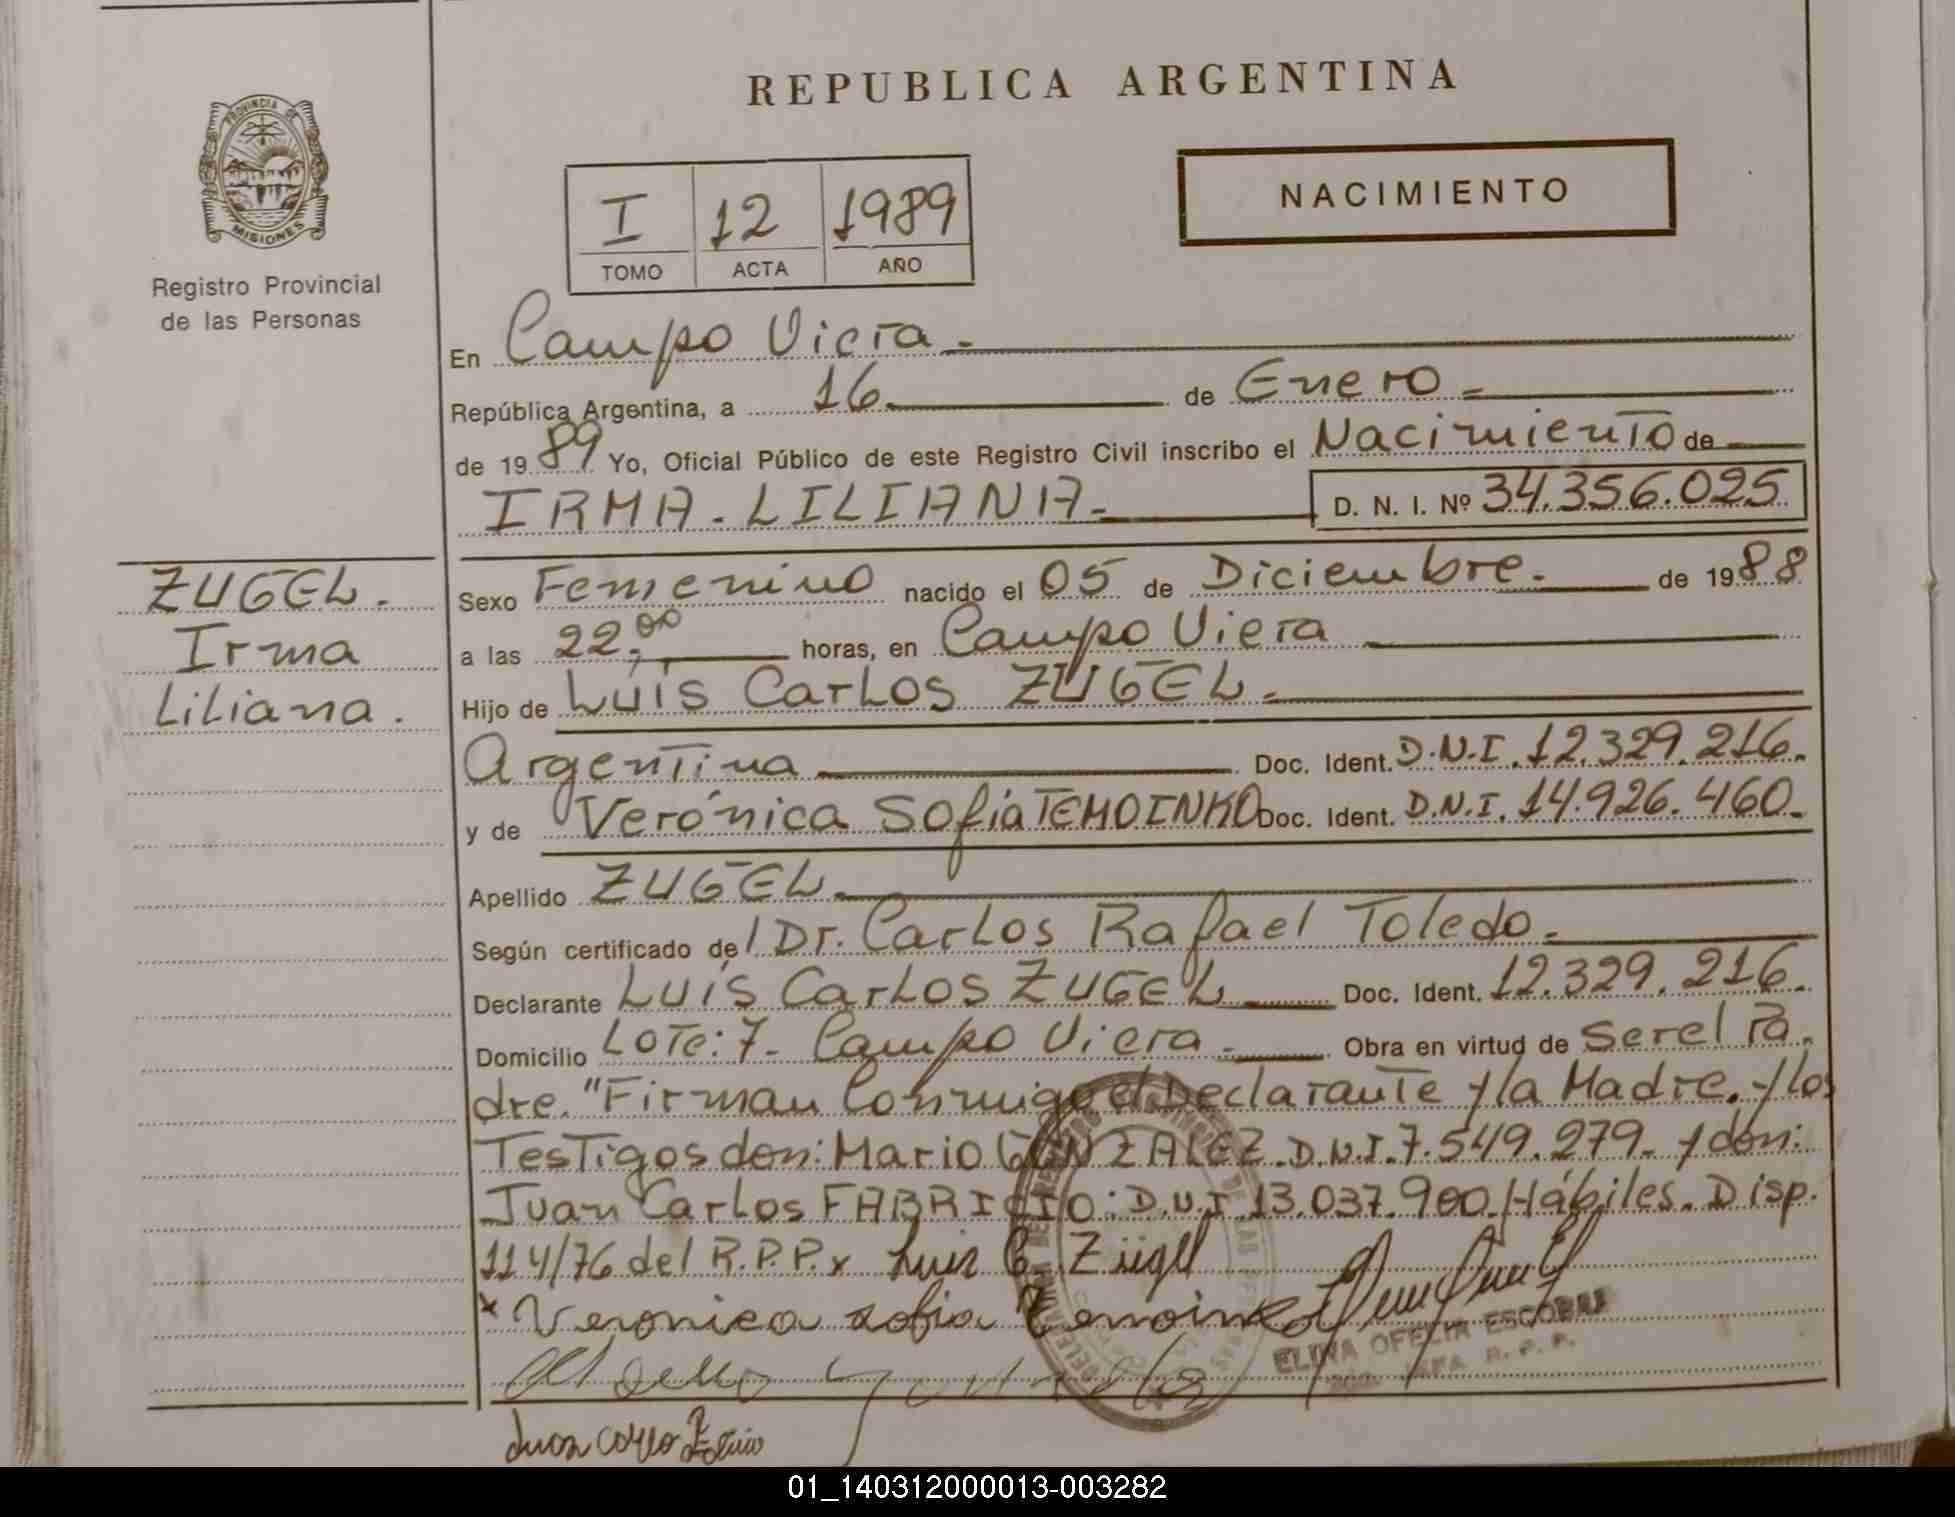 REPUBLICA ARGENTINA
PROVINCIA DE
MISIONES
Registro Provincial
de las Personas
NACIMIENTO
I 12 1989
TOMO ACTA AÑO
En Campo Viera.
República Argentina, a 16 de Enero
de 1989 Yo, Oficial Público de este Registro Civil inscribo el Nacimiento de
IRMA. LILIANA. D. N. I. Nº 34.356.025
ZUGEL.
Irma
Liliana.
Sexo Femenino nacido el 05 de Diciembre. de 1988
a las 22,00 horas, en Campo Viera
Hijo de Luís Carlos ZUGEL.
Argentina Doc. Ident. D.N.I. 12.329.216.
y de Verónica Sofía TEMOINKO Doc. Ident. D.N.I. 14.926.460.
Apellido ZUGEL.
Según certificado del Dr. Carlos Rafael Toledo.
Declarante Luís Carlos ZUGEL Doc. Ident. 12.329.216.
Domicilio Lote: 7. Campo Viera. Obra en virtud de Ser el Pa
dre. "Firman Conmigo el Declarante y la Madre. y los
Testigos don: Mario GONZALEZ. D.N.I. 7.549.279. y don:
Juan Carlos FABRICIO: D.N.I. 13.037.900. Hábiles. Disp.
114/76 del R.P.P. x Luis C. Zügel
x Veronica Sofia
ELINA OFELIA ESCOBAR
R. P. P.
Juan Carlo
01_140312000013-003282